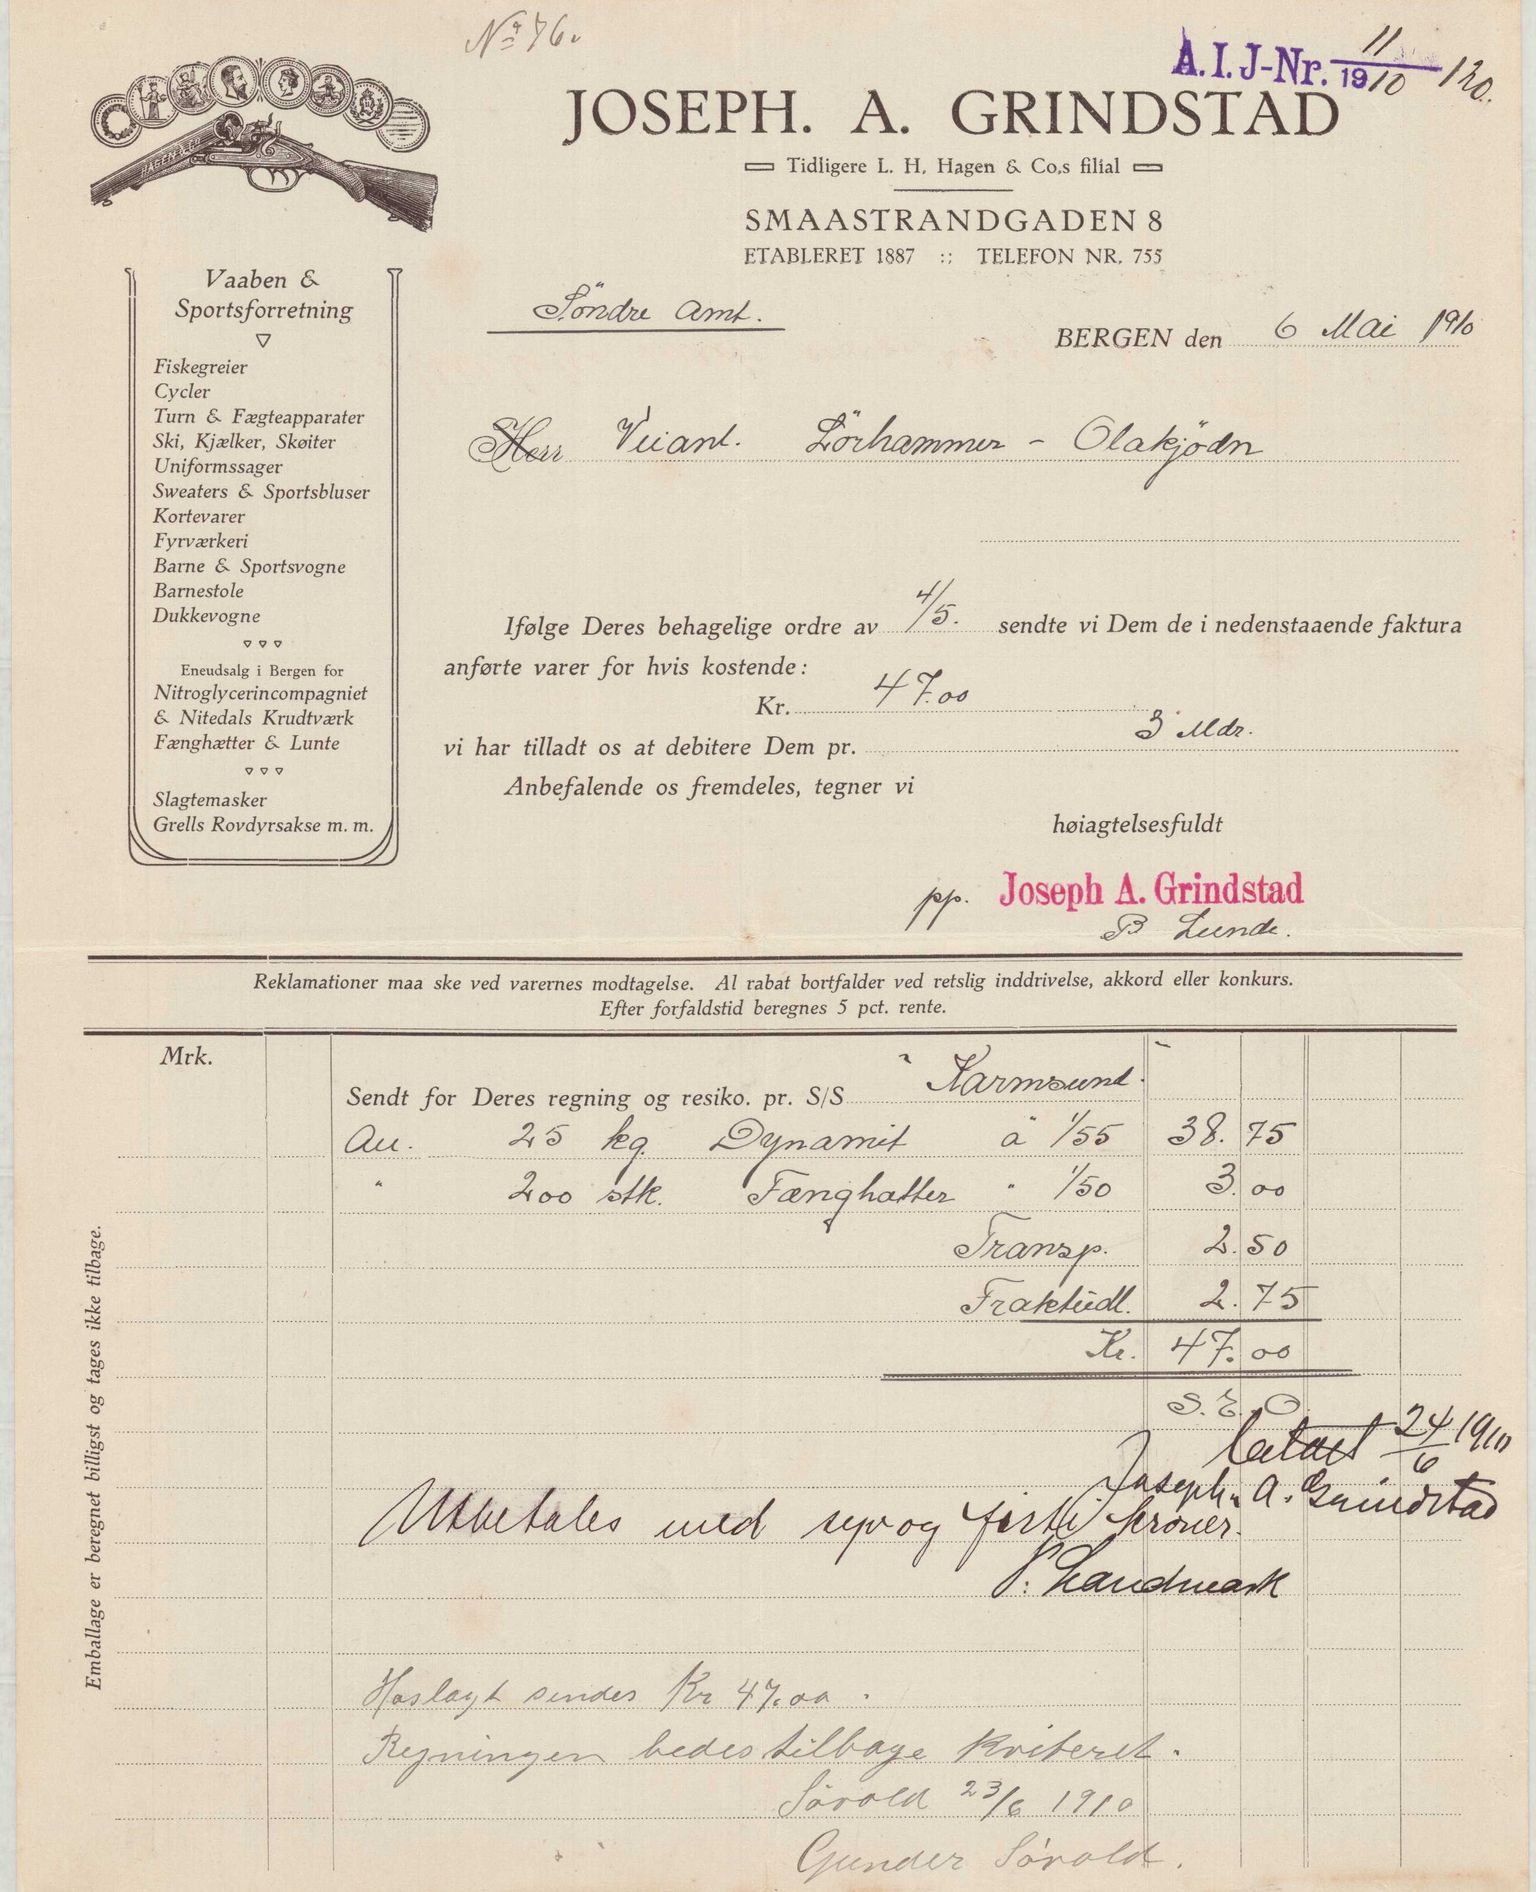 No 76.
A. I. J-Nr. 11/1910 120.
HAGEN & Co
JOSEPH. A. GRINDSTAD
Tidligere L. H. Hagen & Co.s filial
SMAASTRANDGADEN 8
ETABLERET 1887 :: TELEFON NR. 755
Vaaben &
Sportsforretning
Fiskegreier
Cycler
Turn & Fægteapparater
Ski, Kjælker, Skøiter
Uniformssager
Sweaters & Sportsbluser
Kortevarer
Fyrværkeri
Barne & Sportsvogne
Barnestole
Dukkevogne
Eneudsalg i Bergen for
Nitroglycerincompagniet
& Nitedals Krudtværk
Fænghætter & Lunte
Slagtemasker
Grells Rovdyrsakse m. m.
Söndre Amt.
BERGEN den 6 Mai 1910
Herr Veianl. Lörhammer - Olakjödn
Ifølge Deres behagelige ordre av 4/5. sendte vi Dem de i nedenstaaende faktura
anførte varer for hvis kostende:
Kr. 47.00
vi har tilladt os at debitere Dem pr. 3 Mdr.
Anbefalende os fremdeles, tegner vi
høiagtelsesfuldt
pp. Joseph A. Grindstad
B Lunde.
Reklamationer maa ske ved varernes modtagelse. Al rabat bortfalder ved retslig inddrivelse, akkord eller konkurs.
Efter forfaldstid beregnes 5 pct. rente.
Mrk.
Sendt for Deres regning og resiko. pr. S/S "Karmsund"
An. 25 kg. Dynamit à 1/55 38.75
" 200 stk. Fænghatter " 1/50 3.00
Transp. 2.50
Fraktudl. 2.75
Kr. 47.00
S. E. O.
Betalt 24/6 1910
Joseph. A. Grindstad
Utbetales med syv og firti kroner.
P. Landmark
Emballage er beregnet billigst og tages ikke tilbage.
Hoslagt sendes Kr 47.00.
Regningen bedes tilbage kviteret.
Sörvold 23/6 1910
Gunder Sörvold.